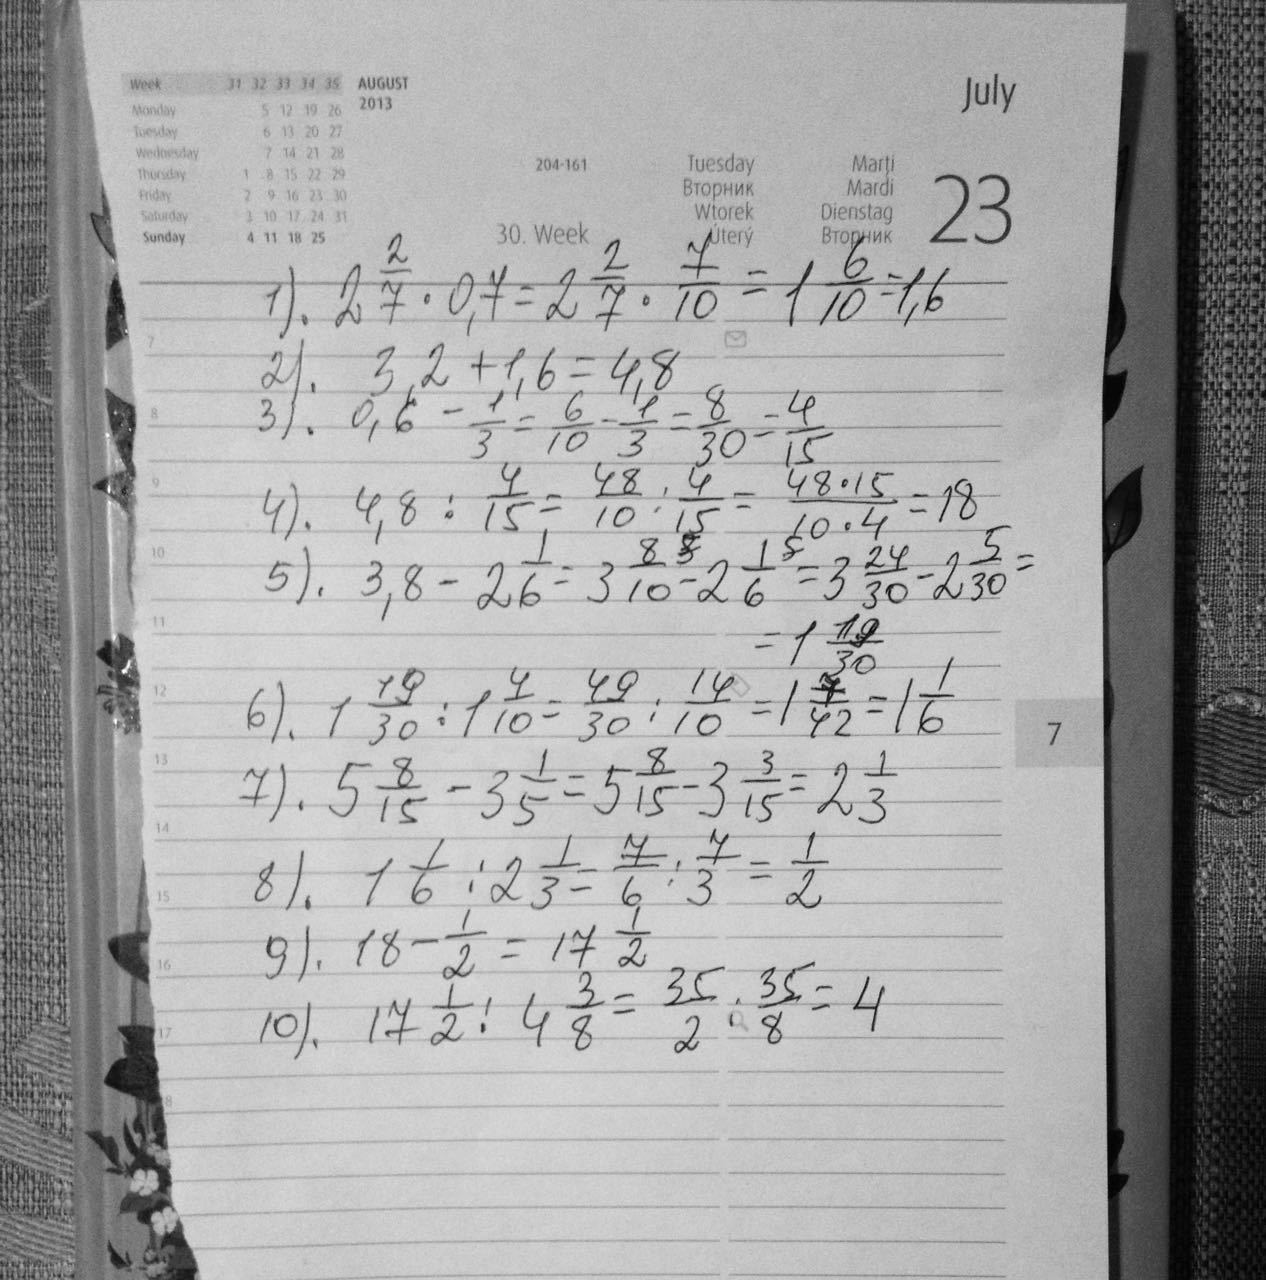 Week 31 32 33 34 35 AUGUST
Monday 5 12 19 26 2013
Tuesday 6 13 20 27
Wednesday 7 14 21 28
Thursday 1 8 15 22 29
Friday 2 9 16 23 30
Saturday 3 10 17 24 31
Sunday 4 11 18 25
July
204-161 Tuesday Marți
Вторник Mardi
Wtorek Dienstag
30. Week Úterý Вторник
23
1). 2 2/7 · 0,7 = 2 2/7 · 7/10 = 1 6/10 = 1,6
7
2). 3,2 + 1,6 = 4,8
8
3). 0,6 - 1/3 = 6/10 - 1/3 = 8/30 = 4/15
9
4). 4,8 : 4/15 = 48/10 : 4/15 = 48·15/10·4 = 18
10
5). 3,8 - 2 1/6 = 3 8/10 - 2 1/6 = 3 24/30 - 2 5/30 =
11
= 1 19/30
12
6). 1 19/30 : 1 4/10 = 49/30 : 14/10 = 1 7/42 = 1 1/6
7
13
7). 5 8/15 - 3 1/5 = 5 8/15 - 3 3/15 = 2 1/3
14
8). 1 1/6 : 2 1/3 = 7/6 : 7/3 = 1/2
15
9). 18 - 1/2 = 17 1/2
16
10). 17 1/2 : 4 3/8 = 35/2 : 35/8 = 4
17
8